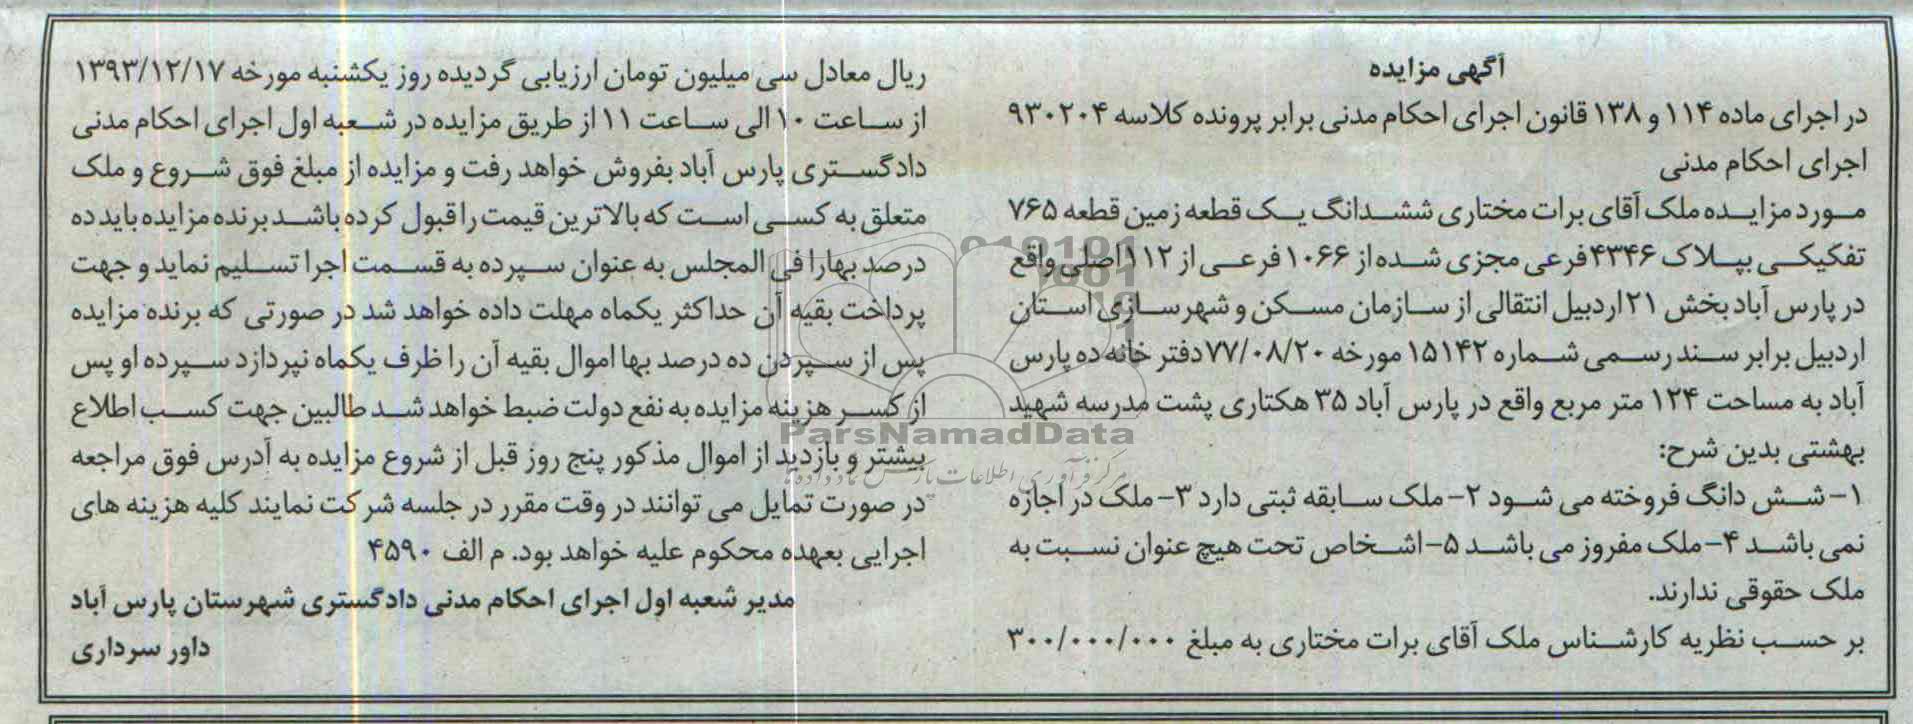 آگهی مزایده
در اجرای ماده ۱۱۴ و ۱۳۸ قانون اجرای احکام مدنی برابر پرونده کلاسه ۹۳۰۲۰۴
اجرای احکام مدنی
مورد مزایده ملک آقای برات مختاری ششدانگ یک قطعه زمین قطعه ۷۶۵
تفکیکی بپلاک ۴۳۴۶ فرعی مجزی شده از ۱۰۶۶ فرعی از ۱۱۲ اصلی واقع
در پارس آباد بخش ۲۱ اردبیل انتقالی از سازمان مسکن و شهرسازی استان
اردبیل برابر سند رسمی شماره ۱۵۱۴۲ مورخه ۷۷/۰۸/۲۰ دفتر خانه ده پارس
آباد به مساحت ۱۲۴ متر مربع واقع در پارس آباد ۳۵ هکتاری پشت مدرسه شهید
بهشتی بدین شرح:
۱- شش دانگ فروخته می شود ۲- ملک سابقه ثبتی دارد ۳- ملک در اجاره
نمی باشد ۴- ملک مفروز می باشد ۵- اشخاص تحت هیچ عنوان نسبت به
ملک حقوقی ندارند.
بر حسب نظریه کارشناس ملک آقای برات مختاری به مبلغ ۳۰۰/۰۰۰/۰۰۰
ریال معادل سی میلیون تومان ارزیابی گردیده روز یکشنبه مورخه ۱۳۹۳/۱۲/۱۷
از ساعت ۱۰ الی ساعت ۱۱ از طریق مزایده در شعبه اول اجرای احکام مدنی
دادگستری پارس آباد بفروش خواهد رفت و مزایده از مبلغ فوق شروع و ملک
متعلق به کسی است که بالاترین قیمت را قبول کرده باشد برنده مزایده باید ده
درصد بها را فی المجلس به عنوان سپرده به قسمت اجرا تسلیم نماید و جهت
پرداخت بقیه آن حداکثر یکماه مهلت داده خواهد شد در صورتی که برنده مزایده
پس از سپردن ده درصد بها اموال بقیه آن را ظرف یکماه نپردازد سپرده او پس
از کسر هزینه مزایده به نفع دولت ضبط خواهد شد طالبین جهت کسب اطلاع
بیشتر و بازدید از اموال مذکور پنج روز قبل از شروع مزایده به آدرس فوق مراجعه
در صورت تمایل می توانند در وقت مقرر در جلسه شرکت نمایند کلیه هزینه های
اجرایی بعهده محکوم علیه خواهد بود. م الف ۴۵۹۰
مدیر شعبه اول اجرای احکام مدنی دادگستری شهرستان پارس آباد
داور سرداری
ParsNamadData